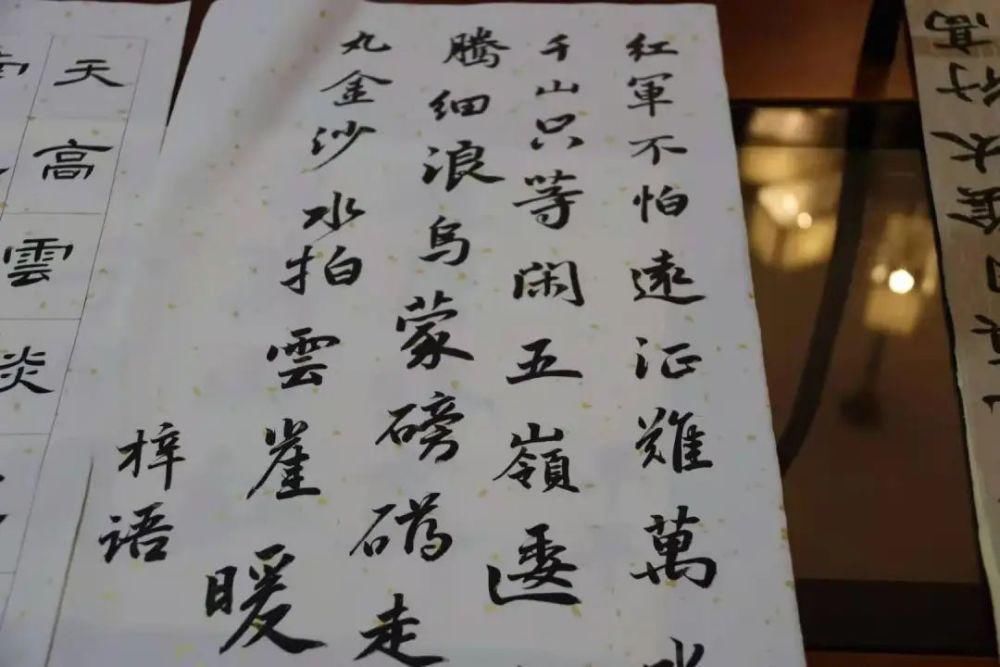 红軍不怕遠征難萬
千山只等闲五嶺逶
騰细浪烏蒙磅礴走
丸金沙水拍雲崖暖
梓语
天高雲